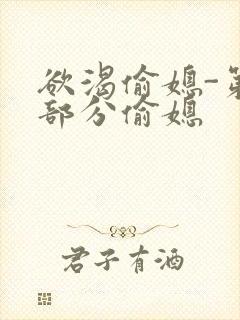 欲渴偷媳-第
部分偷媳
君子有酒